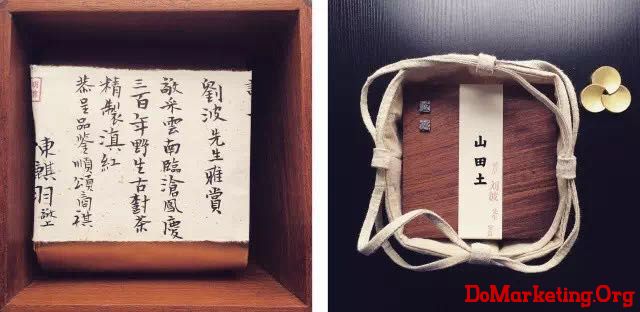 劉波先生雅賞
敬采雲南臨滄鳳慶
三百年野生古樹茶
精製滇紅
恭呈品鑒順頌商祺
陳麒羽敬上
山田土
刘波
DoMarketing.Org